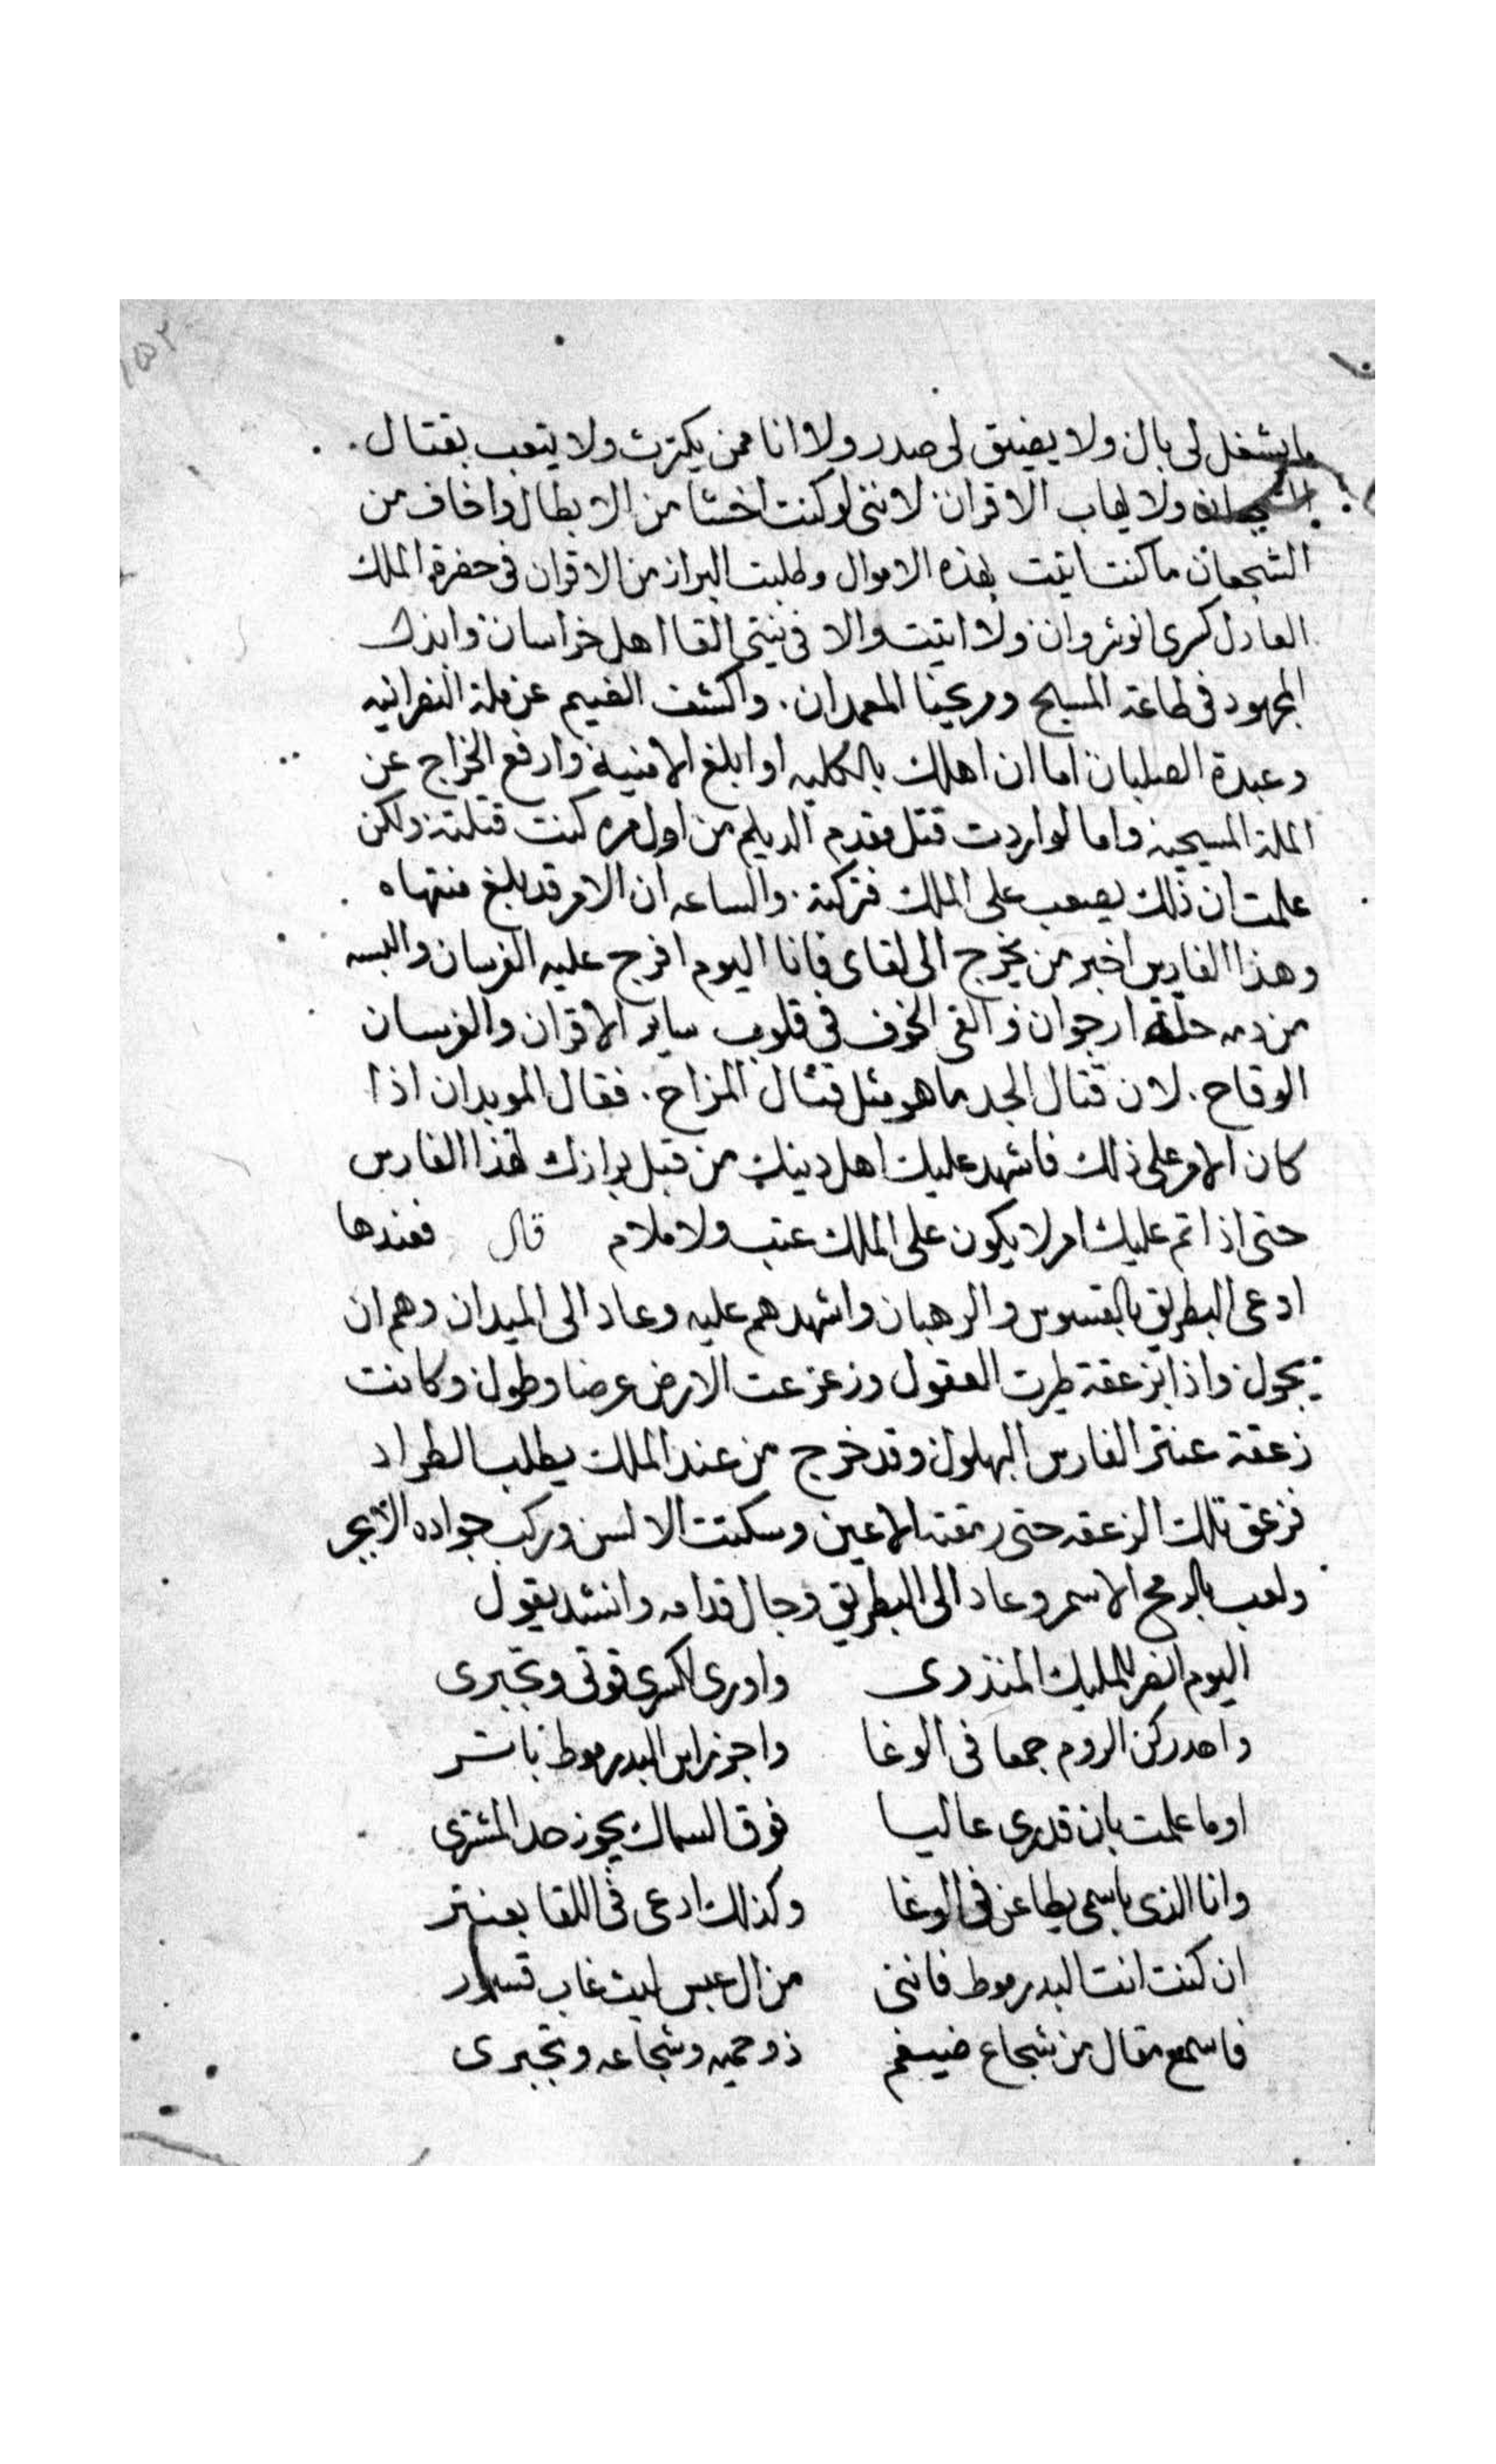 ١٥٢
ما يشغل لى بال ولا يضيق لى صدر ولا انا ممن يكترث ولا يتعب بقتال.
الشجعان ولا يهاب الاقران لاننى لو كنت اخشا من الابطال واخاف من
الشجعان ما كنت اتيت بهذه الاموال وطلبت البراز من الاقران فى حضرة الملك
العادل كسرى انوشروان ولا اتيت والا فى نيتى القا اهل خراسان وابذل
المجهود فى طاعة المسيح ومريحنا المعمدان. واكشف الضيم عن ملة النصرانيه
وعبدة الصلبان اما ان اهلك بالكليه او ابلغ الامنية وارفع الخراج عن
الملة المسيحيه واما لو اردت قتل مقدم الديلم من اول مره كنت قتلته ولكن
علمت ان ذلك يصعب على الملك فتركته. والساعه ان الامر قد بلغ منتهاه
وهذا الفارس اخبر من يخرج الى لقاى فانا اليوم افرج عليه الفرسان والبسه
من دمه حلة ارجوان والقى الخوف فى قلوب ساير الاقران والفرسان
الوقاح. لان قتال الجد ما هو مثل قتال المزاح. فقال الموبدان اذا
كان الامر على ذلك فاشهد عليك اهل دينك من قبل برازك لهذا الفارس
حتى اذا تم عليك امر لا يكون على الملك عتب ولا ملام قال فعندها
ادعى البطريق بالقسوس والرهبان واشهدهم عليه وعاد الى الميدان وهم ان
يجول واذا بزعقة طيرت العقول وزعزعت الارض عرضا وطول وكانت
زعقة عنتر الفارس البهلول وقد خرج من عند الملك يطلب الطراد
فزعق تلك الزعقه حتى رمقته الاعين وسكتت الالسن وركب جواده الابجر
ولعب بالرمح الاسمر وعاد الى البطريق وجال قدامه وانشد يقول
اليوم انصر للمليك المنذرى واورى لكسرى قوتى وتجبرى
واهد ركن الروم جمعا فى الوغا واجز راس البدرموط بابتر
او ما علمت بان قدرى عاليا فوق السماك يجوز حد المشترى
وانا الذى باسمى يطاعن فى الوغا وكذلك ادعى فى اللقا بعنتر
ان كنت انت البدرموط فاننى من ال عبس ليث غاب قسور
فاسمع مقال من شجاع ضيغم ذو حميه وشجاعه وتجبرى